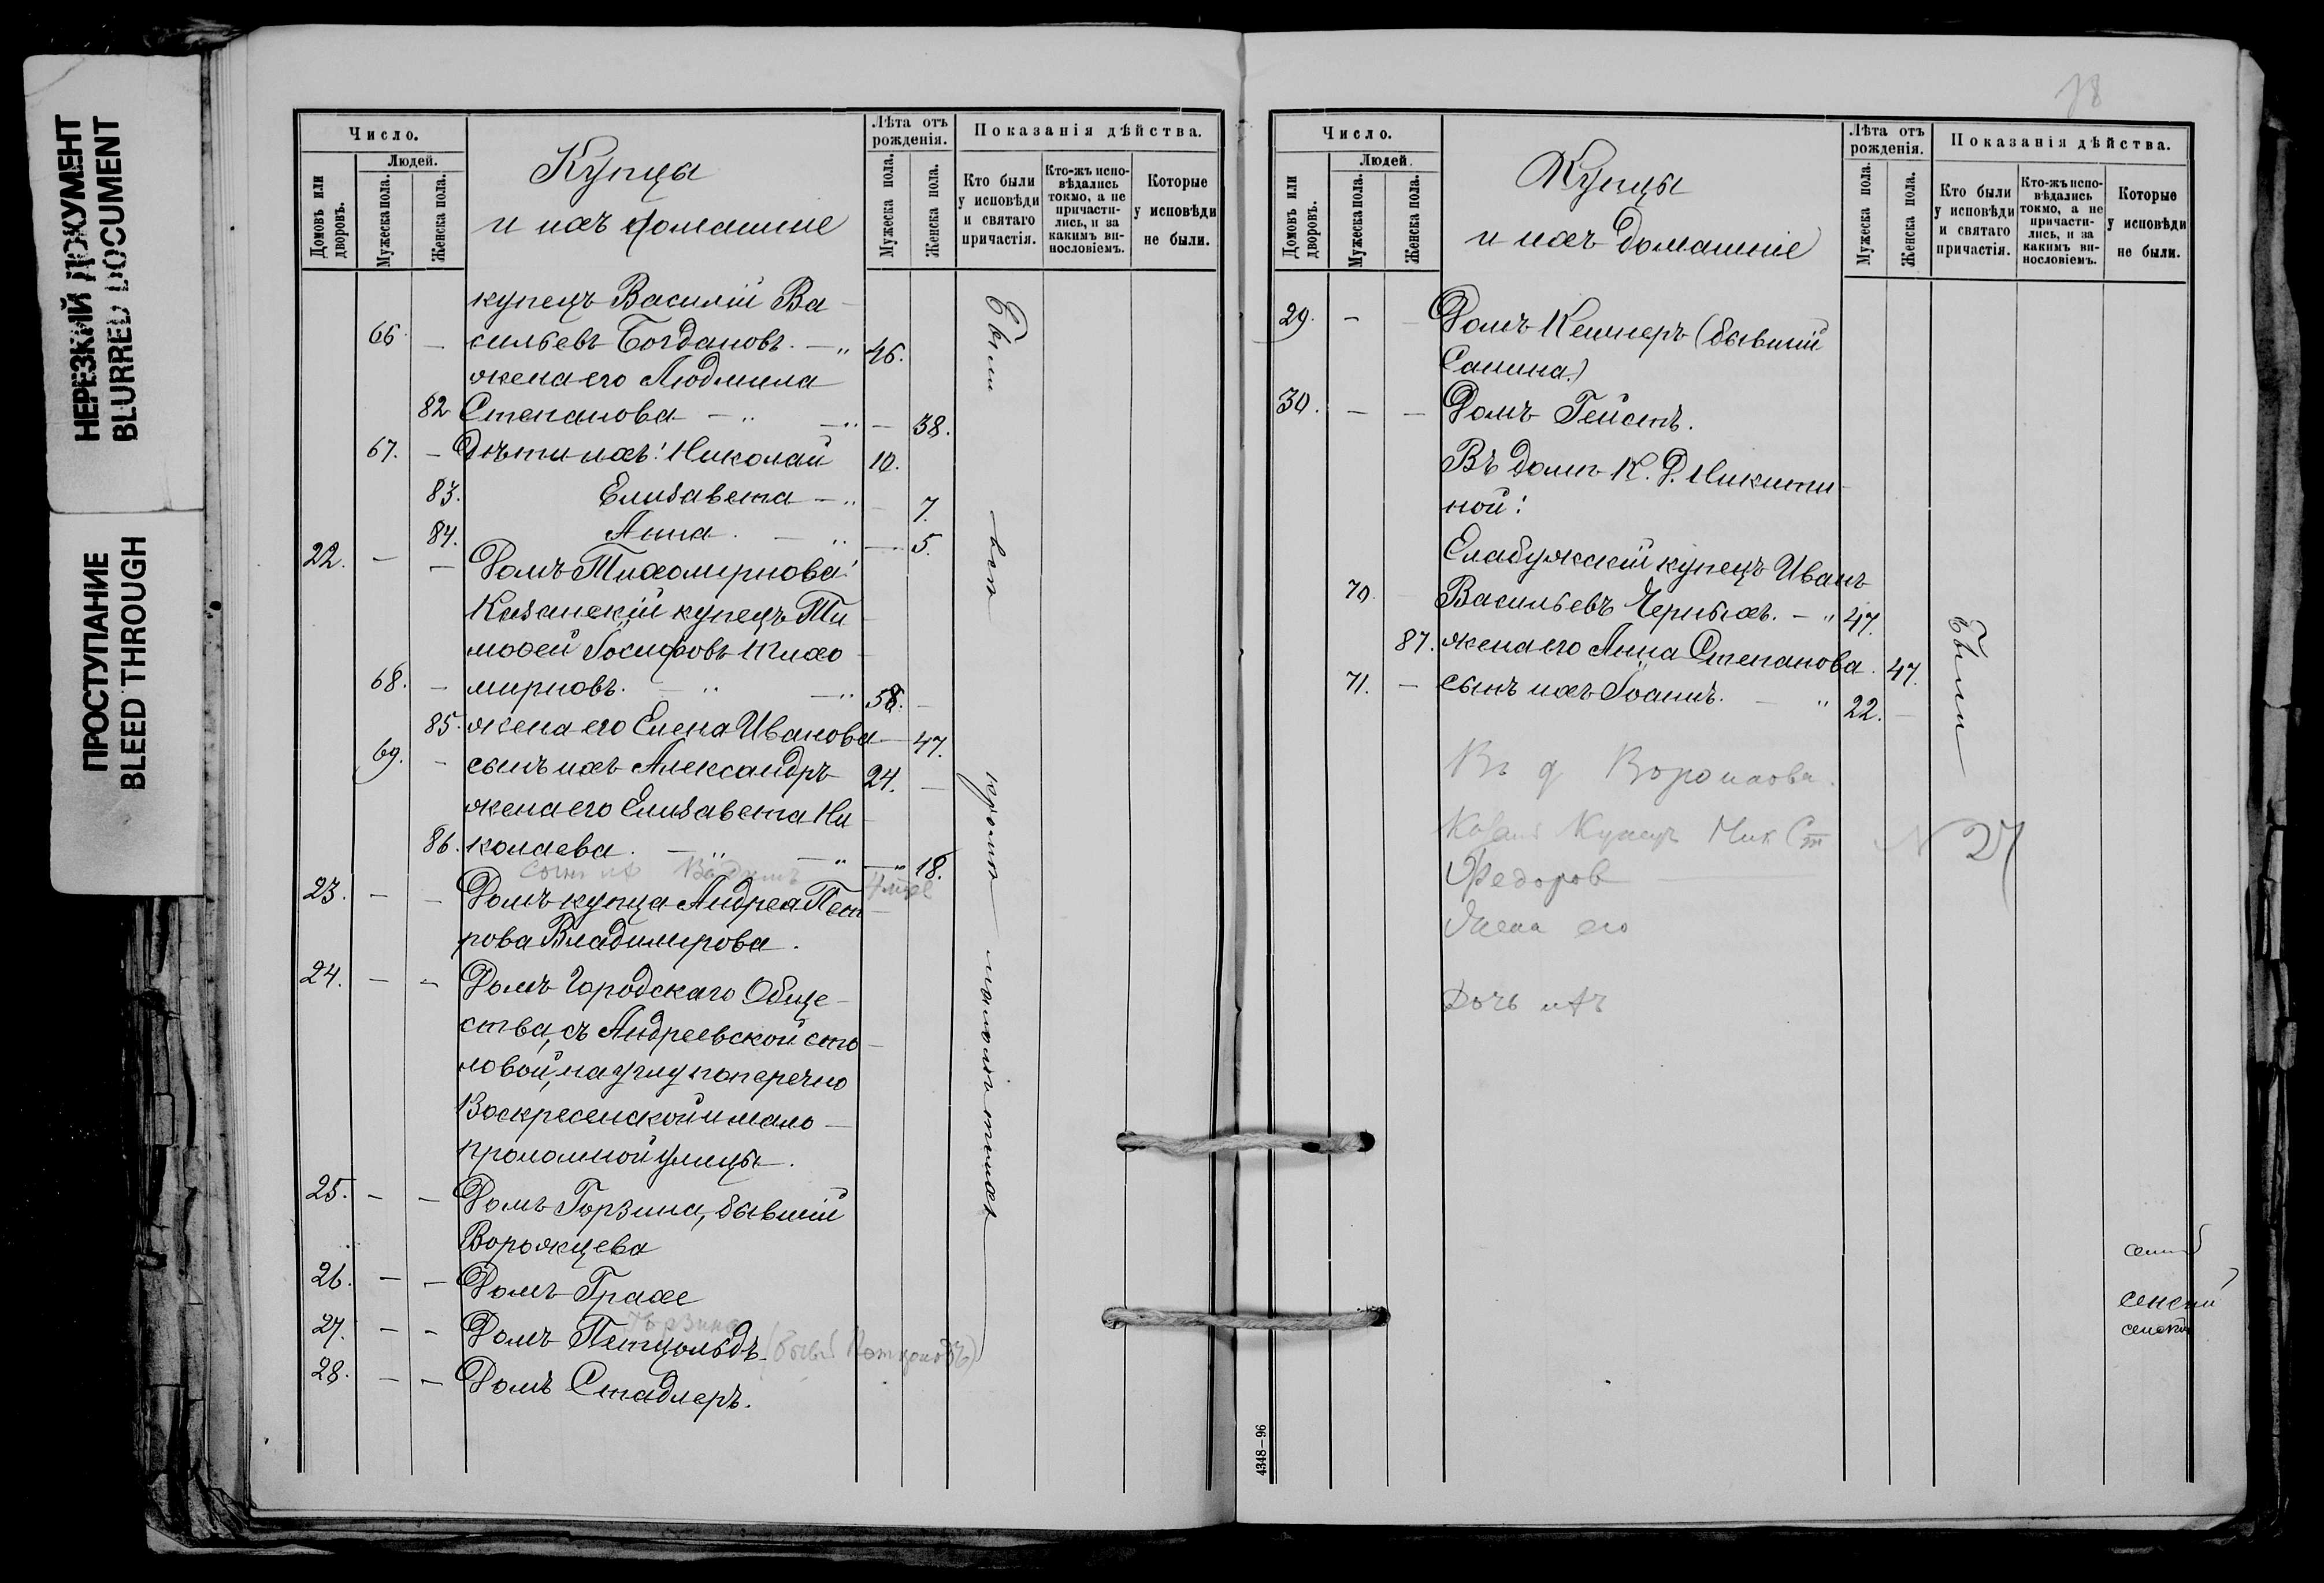 НЕРЕЗКИЙ ДОКУМЕНТ
BLURRED DOCUMENT
ПРОСТУПАНИЕ
BLEED THROUGH
Число.
Людей.
Домовъ или дворовъ.
Мужеска пола.
Женска пола.
Купцы
и ихъ домашніе
Лѣта отъ рожденія.
Мужеска пола.
Женска пола.
Показанія дѣйства.
Кто были у исповѣди и святаго причастія.
Кто-жъ испо-вѣдались токмо, а не причасти-лись, и за какимъ ви-нословіемъ.
Которые у исповѣди не были.
купецъ Василій Ва-
66. — сильевъ Богдановъ. — " 46.
жена его Людмила
82 Степанова — " — " — 38.
67. — Дѣти ихъ: Николай 10.
83. Елизавета — " — 7.
84. Анна. — " — 5.
22. — — Домъ Тихомирнова:
Казанскій купецъ Ти-
моѳей Іосифовъ Тихо-
68. — мирновъ. — " — " 58. —
85. жена его Елена Иванова — 47.
69. — сынъ ихъ Александръ 24. —
жена его Елизавета Ни-
86. колаева. — " — " — " 18.
Сынъ их Вадимъ 4 мѣс
23. — — Домъ купца Андрея Пет-
рова Владимирова.
24. — — Домъ Городскаго Обще-
ства, съ Андреевской сто-
ловой, на углу поперечно
Воскресенской и мало-
проломной улицы.
25. — — Домъ Горзина, бывшій
Ворожцева
26. — — Домъ Грахе
Горзина
27. — — Домъ Петцольдъ (бывш Петцольдъ)
28. — — Домъ Стадлеръ.
Были
вси
кромѣ
Число.
Людей.
Домовъ или дворовъ.
Мужеска пола.
Женска пола.
Купцы
и ихъ домашніе
Лѣта отъ рожденія.
Мужеска пола.
Женска пола.
Показанія дѣйства.
Кто были у исповѣди и святаго причастія.
Кто-жъ испо-вѣдались токмо, а не причасти-лись, и за какимъ ви-нословіемъ.
Которые у исповѣди не были.
78
29. — — Домъ Келлеръ (бывшій
Санина)
30. — — Домъ Гейстъ.
Въ домѣ К. Д. Никити-
ной:
Елабужскій купецъ Иванъ
70. — Васильевъ Черныхъ. — " 47.
87. жена его Анна Степанова. 47.
71. — сынъ ихъ Іоаннъ. — " 22. —
Были
Въ д
Казанс Купецъ Ник Ст
Федоров
жена его
N 27
Дочь ихъ
4348—96